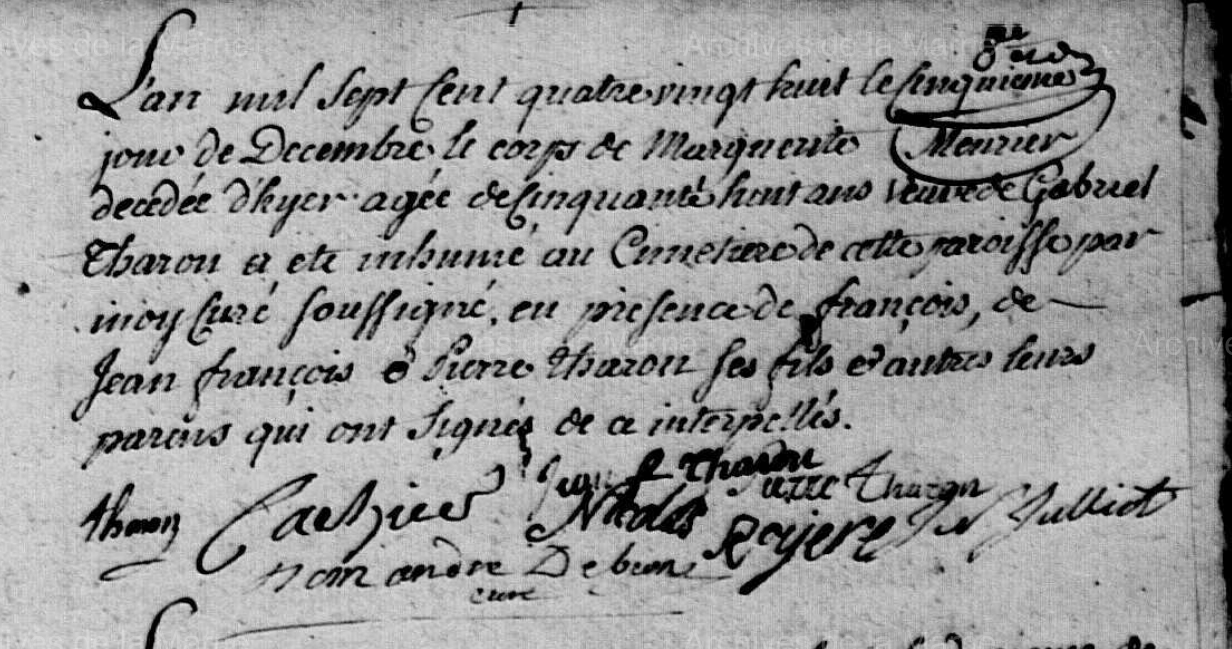 L'an mil sept cent quatre vingt huit le cinquieme
jour de Decembre le corps de Marguerite Meunier
decédée d'hyer agée de cinquante huit ans veuve de Gabriel
Tharon a eté inhumé au Cimetiere de cette paroisse par
moy curé soussigné, en presence de françois, de
Jean françois & Pierre tharon ses fils & autres leurs
parens qui ont signés de ce interpellés.
Jean f tharon
tharon Cachier Nicolas Royere Pierre Tharon J N Julliot
andre Debion
curé